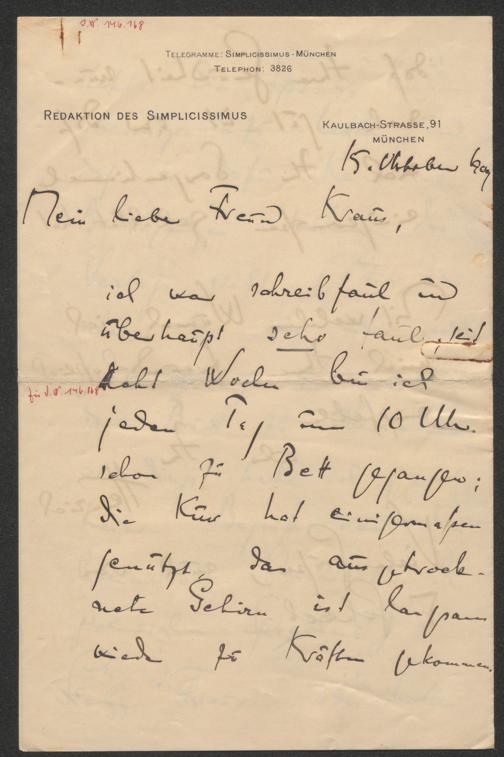 J.N. 146.168
TELEGRAMME: SIMPLICISSIMUS-MÜNCHEN
TELEPHON: 3826
REDAKTION DES SIMPLICISSIMUS
KAULBACH-STRASSE, 91
MÜNCHEN
15. Oktober 1909
Mein lieber Freund Kraus,
ich war schreibfaul und
überhaupt sehr faul, seit
Acht Wochen bin ich
zu J.N. 146.168
jeden Tag um 10 Uhr
schon zu Bett gegangen;
die Kur hat einigermaßen
genützt, das ausgetrock-
nete Gehirn ist langsam
wieder zu Kräften gekommen.